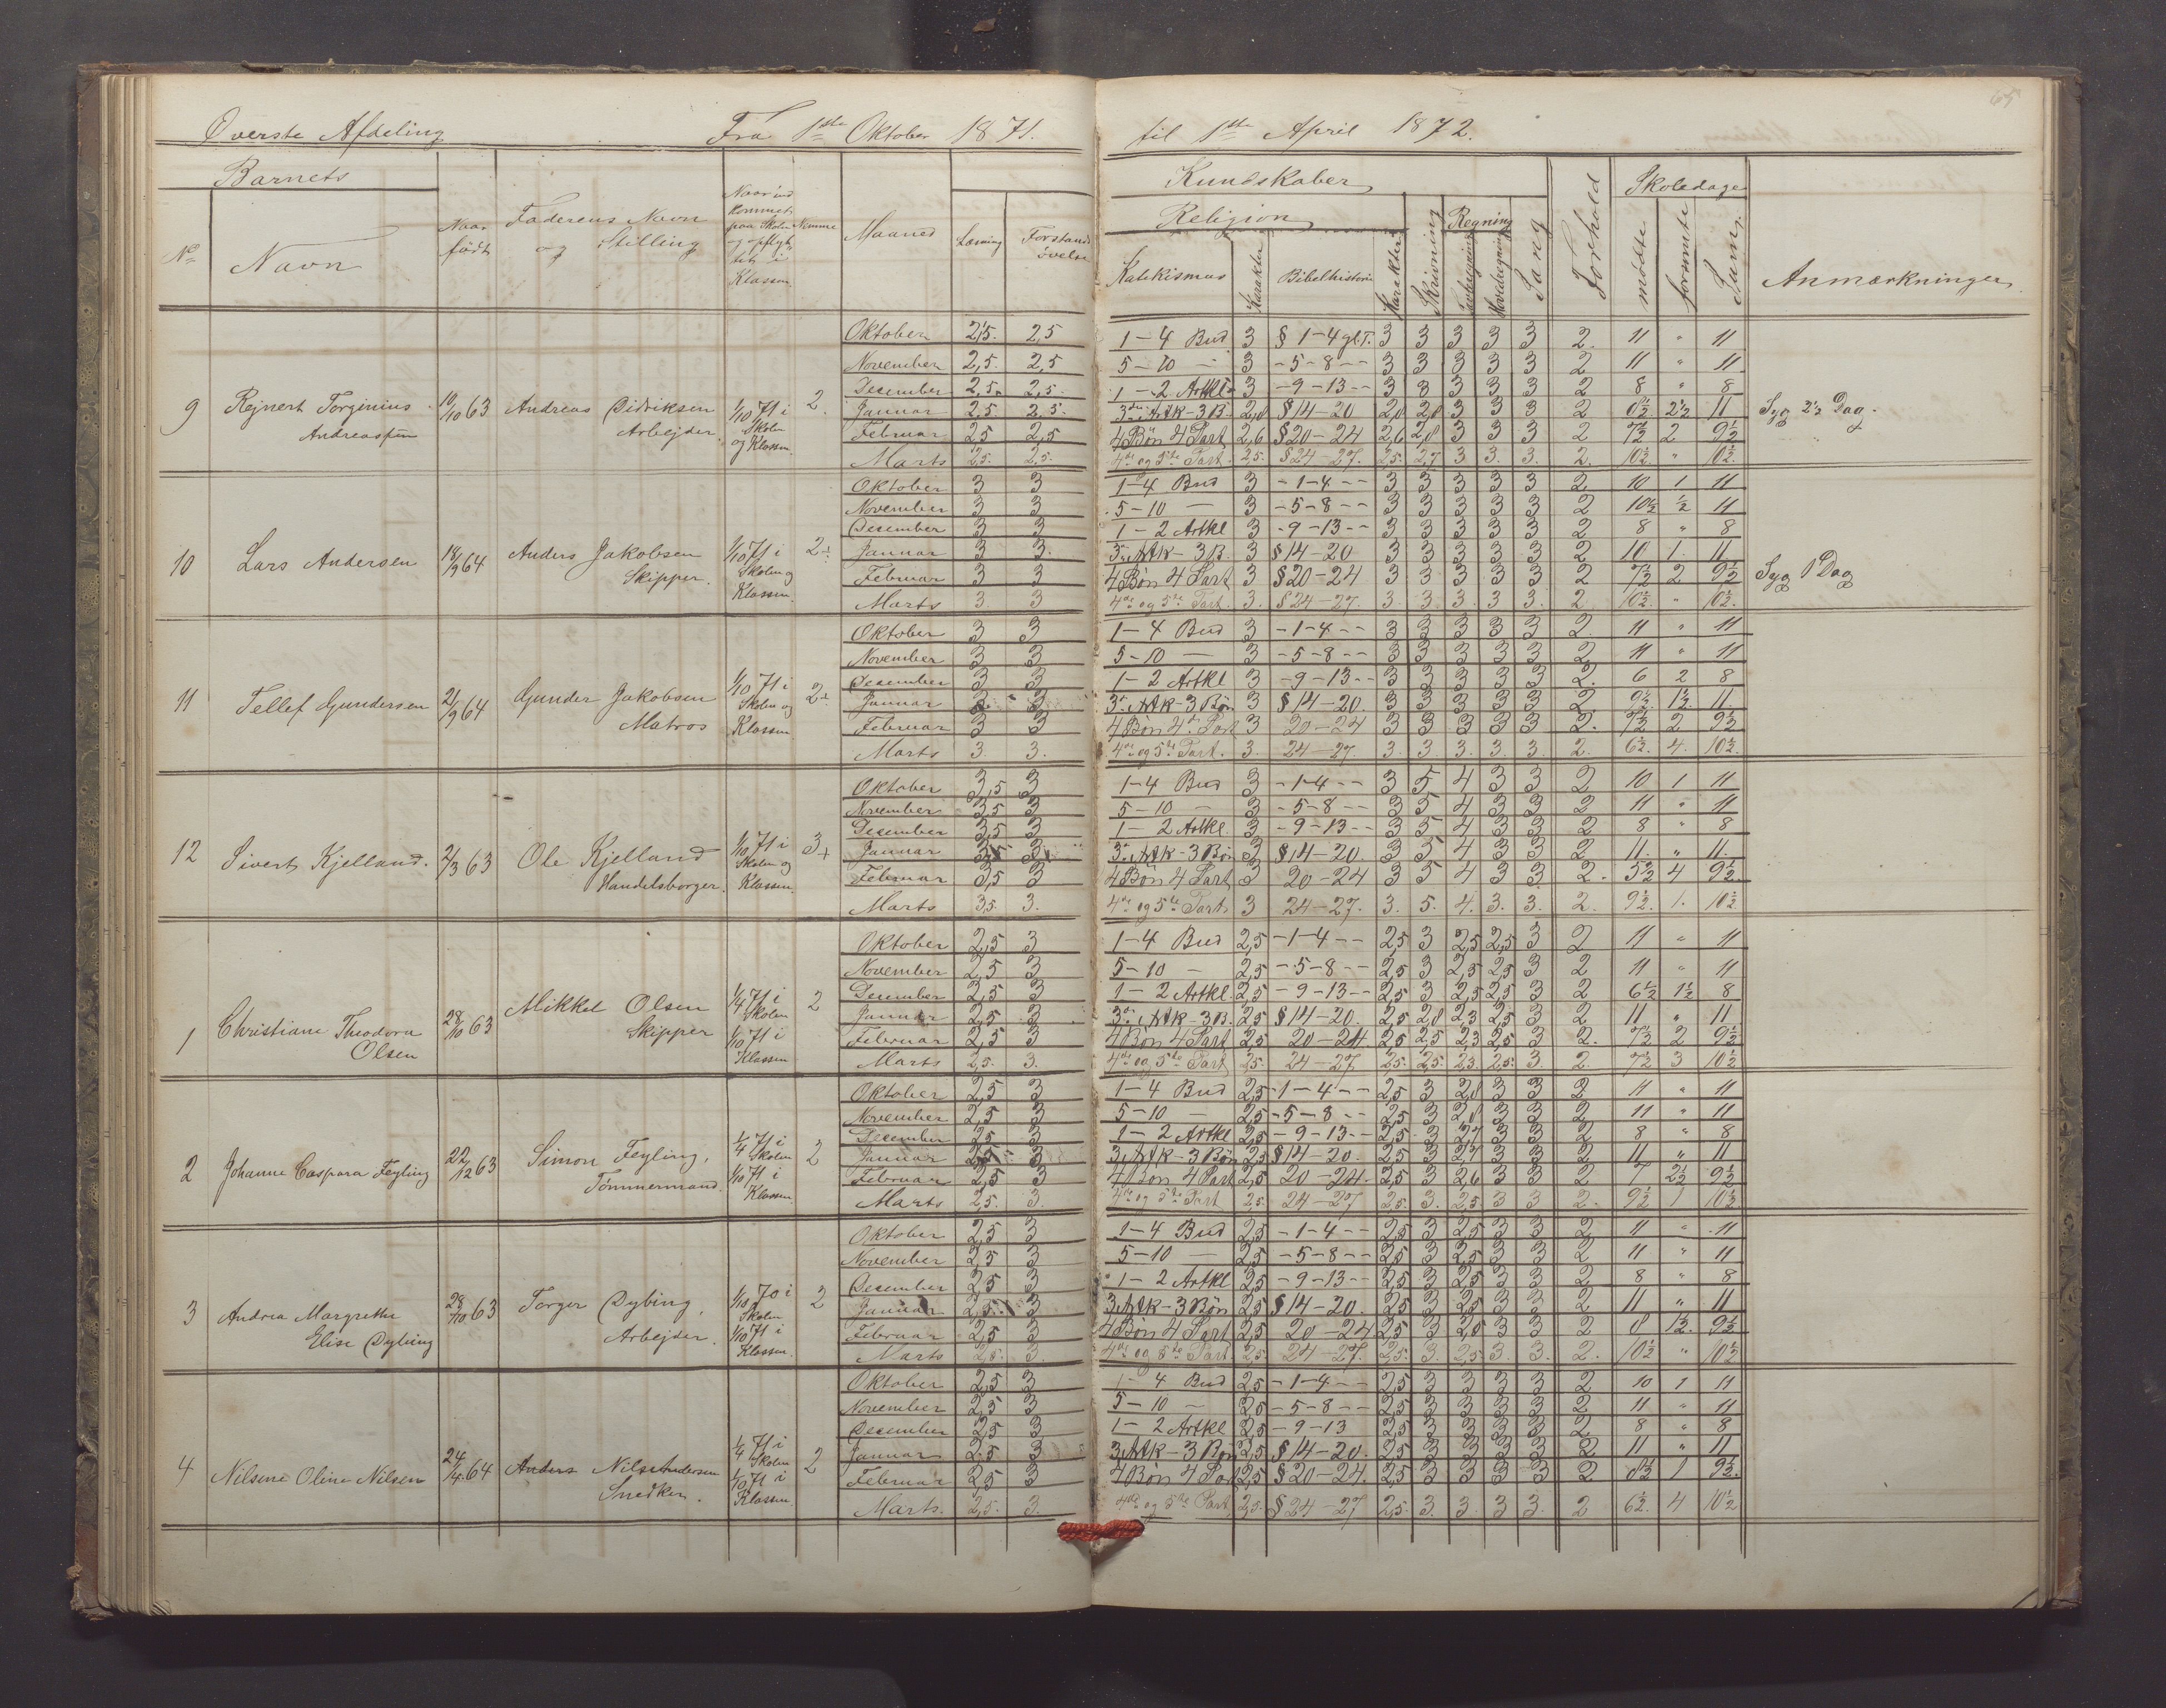 Øverste Afdeling Fra 1ste Oktober 1871. til 1ste April 1872.
65
Barnets
No
Navn
Naar født
Faderens Navn og Stilling
Naar ind kommet paa Skolen og opflyttet i Klassen
Nemme
Maaned
Læsning
Forstands øvelse
Kundskaber
Religion
Katekismus
Karakter
Bibelhistorie
Karakter
Skrivning
Regning
Tavleregning
Hovedregning
Sang
Forhold
Skoledage
mødte
forsømte
Sum
Anmærkninger
9 Rejnert Torginius Andreassen 10/10 63 Andreas Didriksen Arbejder 1/10 71 i Skolen og Klassen 2
Oktober 2,5 2,5 1-4 Bud 3 § 1-4 gl.T. 3 3 3 3 3 2 11 " 11
November 2,5 2,5 5-10 — 3 -5-8-- 3 3 3 3 3 2 11 " 11
December 2,5 2,5 1-2 Artkl 3 -9-13-- 3 3 3 3 3 2 8 " 8
Januar 2,5 2,5 3die Artk-3 B. 2,8 § 14-20 2,8 2,8 3 3 3 2 8½ 2½ 11 Syg 2½ Dag.
Februar 2,5 2,5 4 Bøn 4 Part 2,6 § 20-24 2,6 2,8 3 3 3 2 7½ 2 9½
Marts 2,5 2,5 4de og 5te Part. 2,5 § 24-27. 2,5 2,7 3 3 3 2 10½ " 10½
10 Lars Andersen 18/9 64 Anders Jakobsen Skipper. 1/10 71 i Skolen og Klassen 2+
Oktober 3 3 1-4 Bud 3 -1-4-- 3 3 3 3 3 2 10 1 11
November 3 3 5-10 — 3 -5-8-- 3 3 3 3 3 2 10½ ½ 11
December 3 3 1-2 Artkl 3 -9-13-- 3 3 3 3 3 2 8 " 8
Januar 3 3 3die Artk-3 B. 3 § 14-20 3 3 3 3 3 2 10 1 11
Februar 3 3 4 Bøn 4 Part 3 § 20-24 3 3 3 3 3 2 7½ 2 9½ Syg 1 Dag
Marts 3 3 4de og 5te Part. 3 § 24-27. 3 3 3 3 3 2 10½ " 10½
11 Tellef Gundersen 21/9 64 Gunder Jakobsen Matros 1/10 71 i Skolen og Klassen 2+
Oktober 3 3 1-4 Bud 3 -1-4-- 3 3 3 3 3 2 11 " 11
November 3 3 5-10 — 3 -5-8-- 3 3 3 3 3 2 11 " 11
December 3 3 1-2 Artkl 3 -9-13-- 3 3 3 3 3 2 6 2 8
Januar 3 3 3die Artk-3 Bøn 3 § 14-20. 3 3 3 3 3 2 9½ 1½ 11
Februar 3 3 4 Bøn 4de Part 3 20-24 3 3 3 3 3 2 7½ 2 9½
Marts 3 3 4de og 5te Part. 3 24-27 3 3 3 3 3 2 6½ 4 10½
12 Sivert Kjelland. 2/3 63 Ole Kjelland Handelsborger. 1/10 71 i Skolen og Klassen 3+
Oktober 3,5 3 1-4 Bud 3 -1-4-- 3 5 4 3 3 2 10 1 11
November 3,5 3 5-10 — 3 -5-8-- 3 5 4 3 3 2 11 " 11
December 3,5 3 1-2 Artkl. 3 -9-13-- 3 5 4 3 3 2 8 " 8
Januar 3,5 3 3die Artk-3 Bøn 3 § 14-20. 3 5 4 3 3 2 11 " 11
Februar 3,5 3 4 Bøn 4 Part 3 20-24 3 5 4 3 3 2 5½ 4 9½
Marts 3,5 3 4de og 5te Part 3 24-27. 3 5 4 3 3 2 9½ 1 10½
1 Christiane Theodora Olsen 28/10 63 Mikkel Olsen Skipper 1/4 71 i Skolen 1/10 71 i Klassen 2
Oktober 2,5 3 1-4 Bud 2,5 -1-4-- 2,5 3 2,5 2,5 3 2 11 " 11
November 2,5 3 5-10 — 2,5 -5-8-- 2,5 3 2,5 2,5 3 2 11 " 11
December 2,5 3 1-2 Artkl. 2,5 -9-13-- 2,5 3 2,5 2,5 3 2 6½ 1½ 8
Januar 2,5 3 3die Artk-3 B. 2,5 § 14-20. 2,5 2,8 2,3 2,5 3 2 11 " 11
Februar 2,5 3 4 Bøn 4 Part 2,5 20-24 2,5 2,5 2,3 2,5 3 2 7½ 2 9½
Marts 2,5 3 4de og 5te Part 2,5 24-27 2,5 2,5 2,3 2,5 3 2 7½ 3 10½
2 Johanne Caspara Feyling 22/12 63 Simon Feyling, Tømmermand 1/4 71 i Skolen 1/10 71 i Klassen 2
Oktober 2,5 3 1-4 Bud 2,5 -1-4-- 2,5 3 2,8 3 3 2 11 " 11
November 2,5 3 5-10 — 2,5 -5-8-- 2,5 3 2,8 3 3 2 11 " 11
December 2,5 3 1-2 Artkl 2,5 -9-13-- 2,5 3 2,7 3 3 2 8 " 8
Januar 2,5 3 3die Artk-3 Bøn 2,5 § 14-20. 2,5 3 2,7 3 3 2 11 " 11
Februar 2,5 3 4 Bøn 4 Part 2,5 20-24. 2,5 3 2,6 3 3 2 7 2½ 9½
Marts 2,5 3 4de og 5te Part 2,5 24-27 2,5 3 2,5 3 3 2 9½ 1 10½
3 Andrea Margrethe Elise Dybing 28/10 63 Torger Dybing, Arbejder. 1/10 70 i Skolen 1/10 71 i Klassen 2
Oktober 2,5 3 1-4 Bud 2,5 -1-4-- 2,5 3 2,5 3 3 2 11 " 11
November 2,5 3 5-10 — 2,5 -5-8-- 2,5 3 2,5 3 3 2 11 " 11
December 2,5 3 1-2 Artkl 2,5 -9-13-- 2,5 3 2,5 3 3 2 8 " 8
Januar 2,5 3 3 Artk-3 Bøn 2,5 § 14-20. 2,5 3 2,5 3 3 2 11 " 11
Februar 2,5 3 4 Bøn 4 Part 2,5 20-24 2,5 3 2,8 3 3 2 8 1½ 9½
Marts 2,5 3 4de og 5te Part. 2,5 24-27. 2,5 3 2,5 3 3 2 10½ " 10½
4 Nilsine Oline Nilsen 24/4 64 Anders Nils Andersen Snedker. 1/4 71 i Skolen 1/10 71 i Klassen 2
Oktober 2,5 3 1-4 Bud 2,5 -1-4-- 2,5 3 3 3 3 2 10 1 11
November 2,5 3 5-10 — 2,5 -5-8-- 2,5 3 3 3 3 2 11 " 11
December 2,5 3 1-2 Artkl 2,5 -9-13 2,5 3 3 3 3 2 8 " 8
Januar 2,5 3 3 Artk-3 Bøn 2,5 § 14-20. 2,5 3 3 3 3 2 11 " 11
Februar 2,5 3 4 Bøn 4 Part 2,5 § 20-24. 2,5 3 3 3 3 2 8½ 1 9½
Marts. 2,5 3 4de og 5te Part 2,5 § 24-27 2,5 3 3 3 3 2 6½ 4 10½